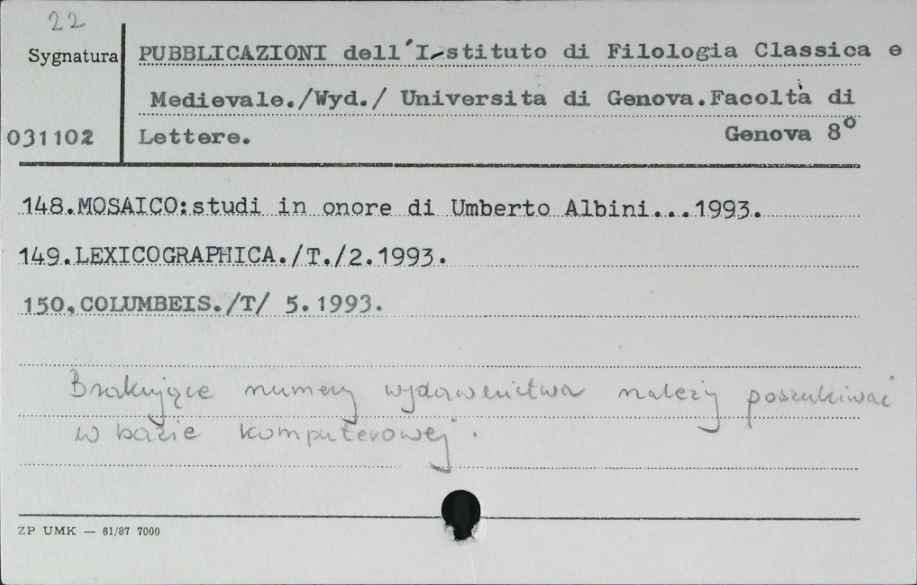 22
Sygnatura
PUBBLICAZIONI dell'Istituto di Filologia Classica e
Medievale./Wyd./ Università di Genova.Facoltà di
031102
Lettere. Genova 8°
148.MOSAICO:studi in onore di Umberto Albini...1993.
149.LEXICOGRAPHICA./T./2.1993.
150.COLUMBEIS./T/ 5.1993.
Brakujące numery wydawnictwa należy poszukiwać
w bazie komputerowej.
ZP UMK — 61/87 7000